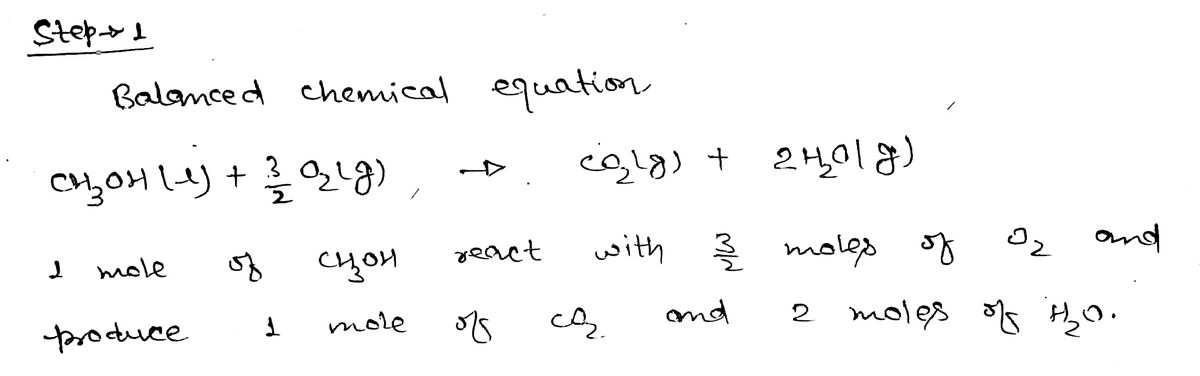 Step→1
Balanced chemical equation
CH₃OH(l) + 3/2 O₂(g) → CO₂(g) + 2H₂O(g)
1 mole of CH₃OH react with 3/2 moles of O₂ and
produce 1 mole of CO₂ and 2 moles of H₂O.